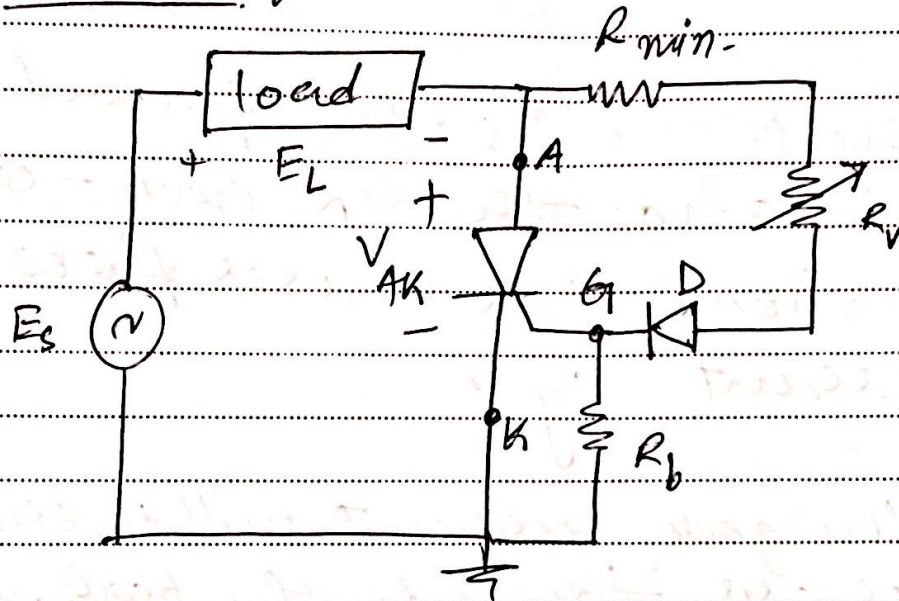 R min.
load
+ E_L -
A
+
R_v
V_AK
G D
-
E_s
~
K
R_b